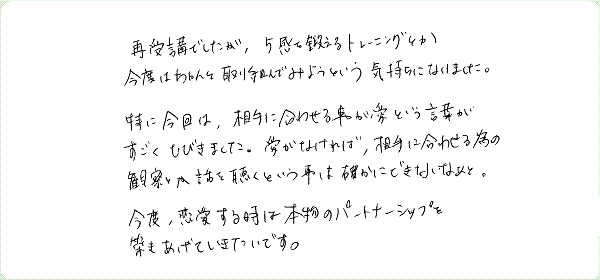 再受講でしたが、5感を鍛えるトレーニングとか
今度はちゃんと取り組んでみようという気持ちになりました。
特に今回は、相手に合わせる事が愛という言葉が
すごくひびきました。愛がなければ、相手に合わせる為の
観察とか話を聴くという事は確かにできないなぁと。
今度、恋愛する時は本物のパートナーシップを
築きあげていきたいです。